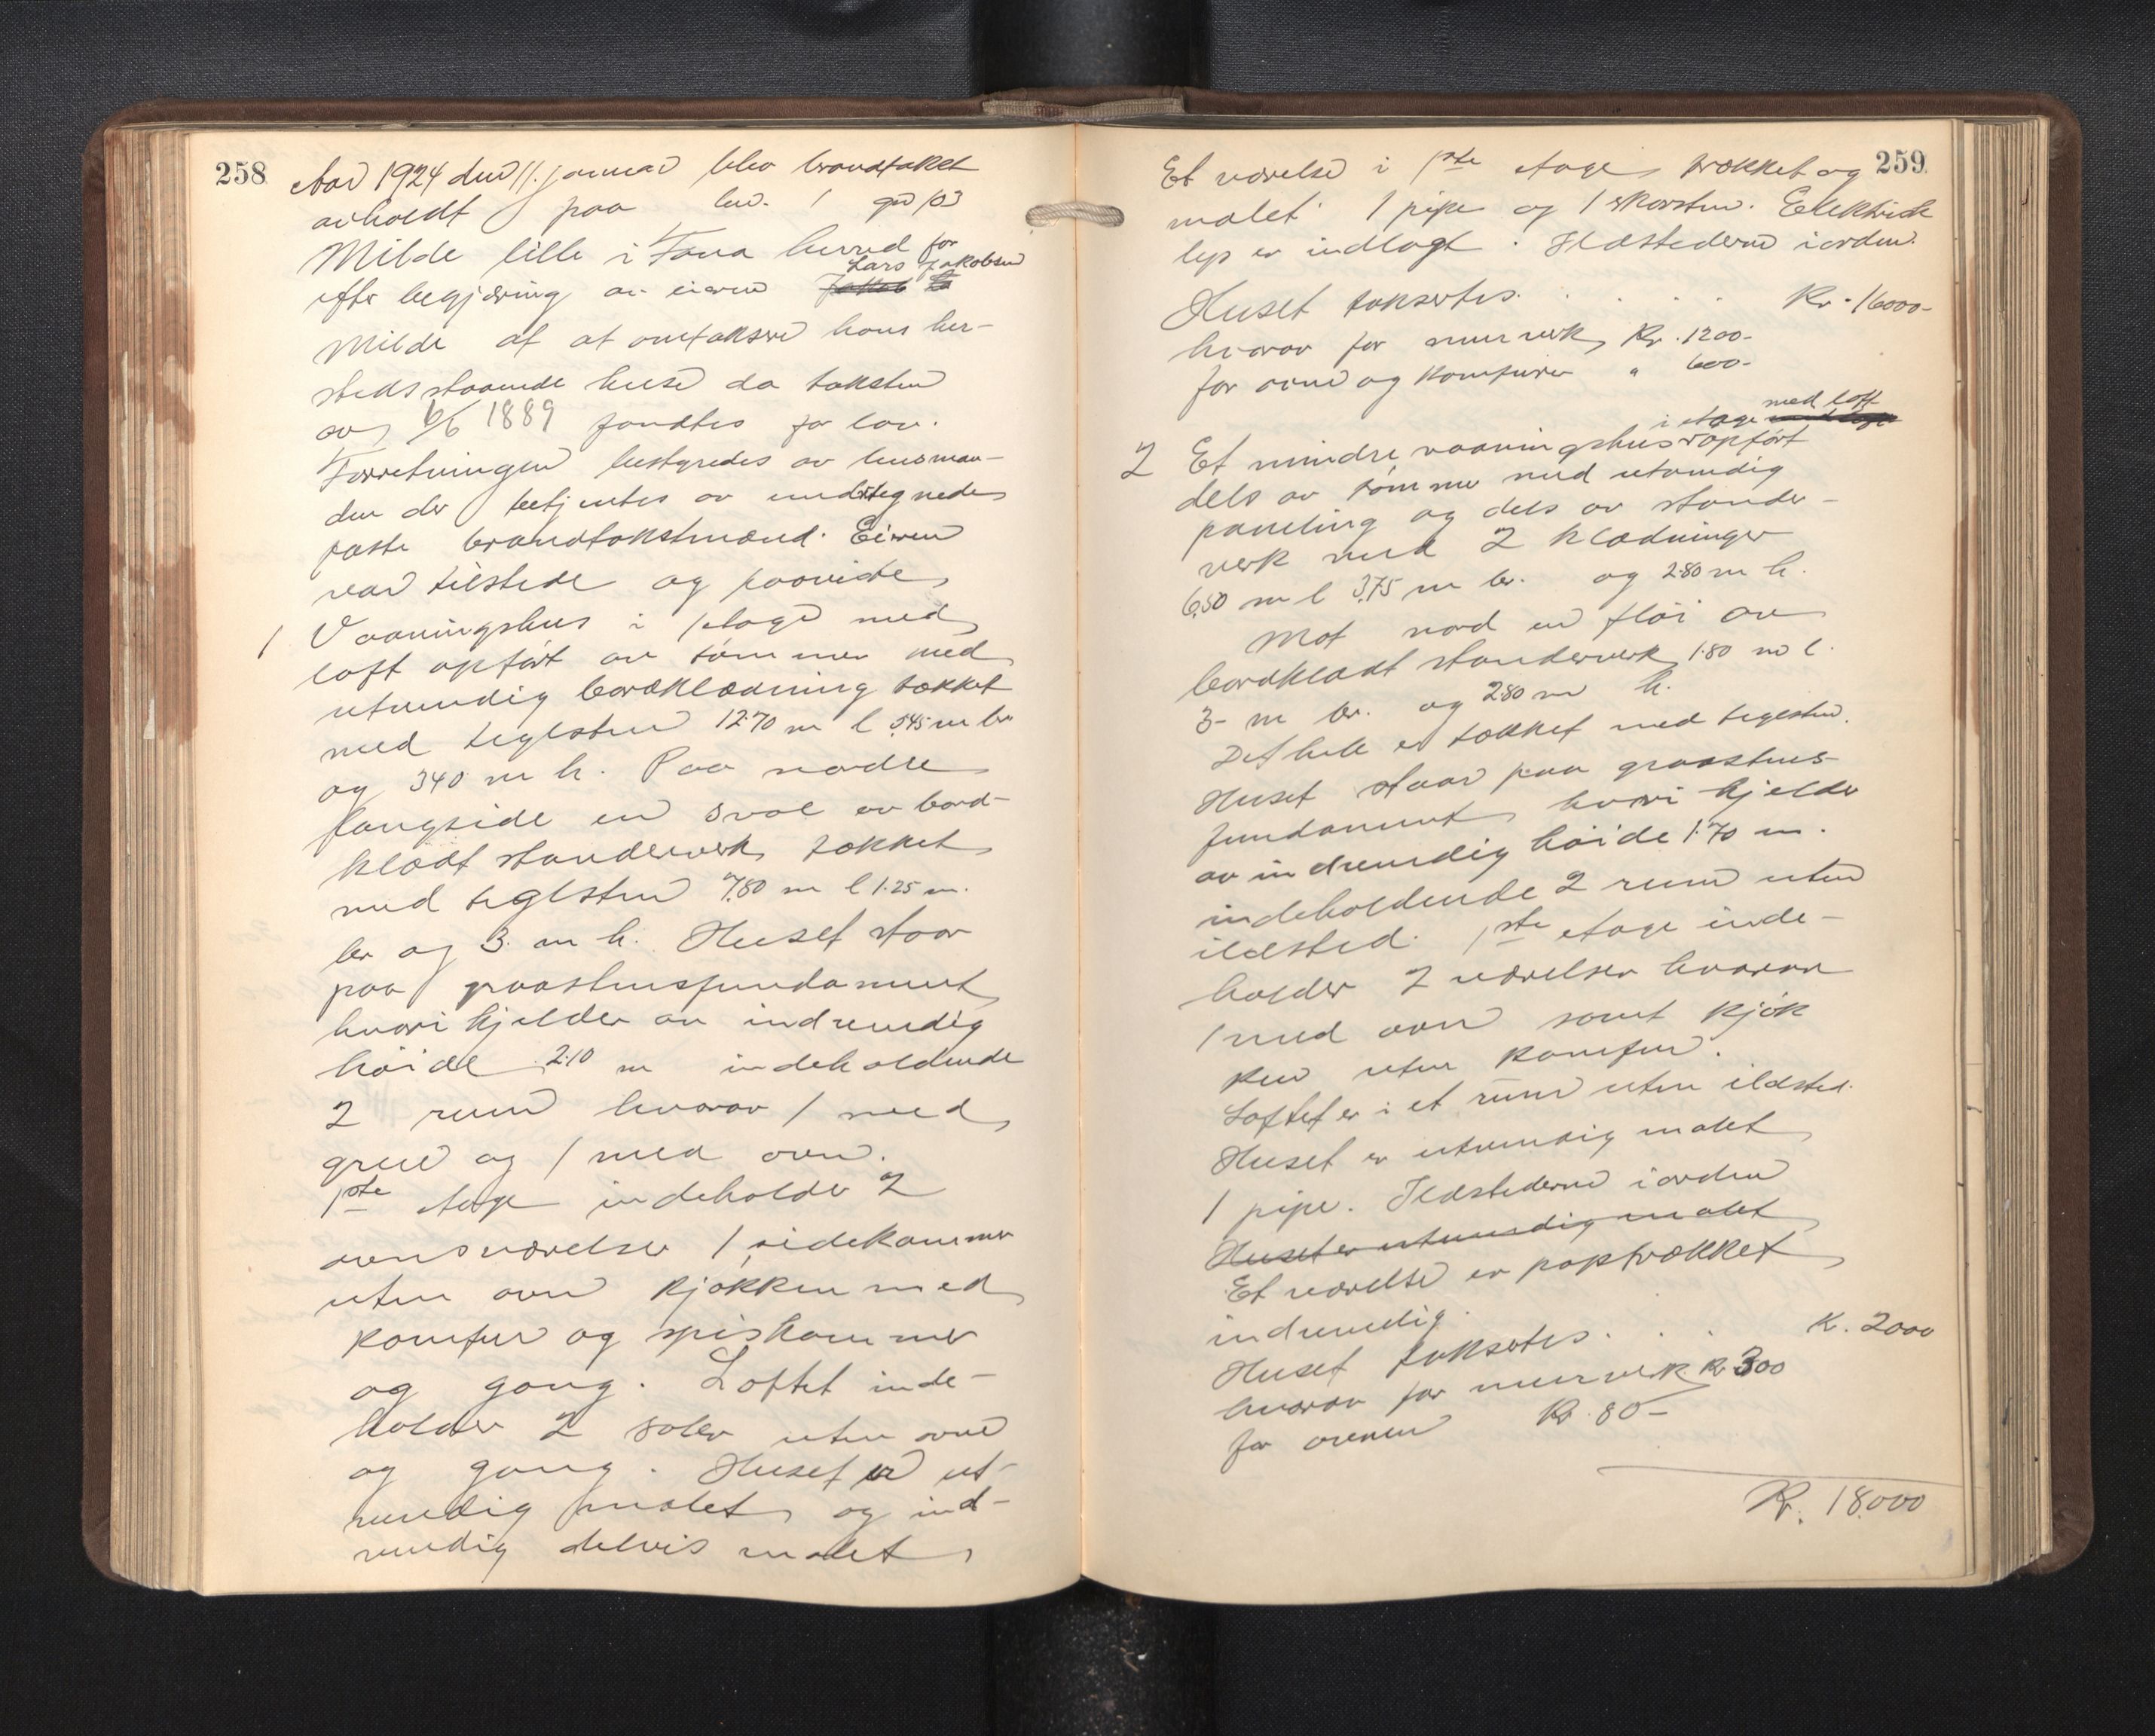 258
Aar 1924 den 11. januar blev brandtakst
avholdt paa br. 1 gd 103
Milde lille i Fana herred for
Lars Jakobsen
efter begjæring av eieren Jakob
Milde at omtaksere hans her-
steds staaende huse da taksten
av 6/6 1889 fandtes for lav.
Forretningen bestyredes av lensman-
den der betjentes av undertegnede
faste brandtakstmænd. Eieren
var tilstede og paaviste
1 Vaaningshus i 1 etage med
loft opført av tømmer med
utvendig bordklædning tækket
med teglsten 12.70 m l 5.45 m br
og 3.40 m h. Paa nordre
langside en sval av bord-
klædt standerverk tækket
med teglsten 7.80 m l 1.25 m.
br og 3. m h. Huset staar
paa graastensfundament
hvori kjelder av indvendig
høide 2.10 m indeholdende
2 rum hvorav 1 med
grue og 1 med ovn.
1ste etage indeholder 2
ovnsværelser 1 sidekammer
uten ovn kjøkken med
komfur og spiskammer
og gang. Loftet inde-
holder 2 saler uten ovne
og gang. Huset er ut-
vendig malet og ind-
vendig delvis malet
259
Et værelse i 1ste etage trækket og
malet 1 pipe og 1 skorsten. Elektrisk
lys er indlagt. Ildstederne i orden.
Huset takseres . . . . Kr. 16000-
hvorav for murverk Kr. 1200-
for ovne og komfurer " 600-
i etage med loft
2 Et mindre vaaningshus opført
dels av tømmer med utvendig
paneling og dels av stander-
verk med 2 klædninger
6.50 m l 3.75 m br. og 2.80 m h.
Mot nord en fløi av
bordklædt standerverk 1.80 m l.
3- m br. og 2.80 m h.
Det hele er tækket med teglsten.
Huset staar paa graastens-
fundament hvori kjelder
av indvendig høide 1.70 m.
indeholdende 2 rum uten
ildsted. 1ste etage inde-
holder 2 værelser hvorav
1 med ovn samt kjøk
ken uten komfur.
Loftet er i et rum uten ildsted.
Huset er utvendig malet
1 pipe. Ildstederne i orden
Huset er utvendig malet
Et værelse er paptrækket
indvendig.
Huset takseres . . . K. 2000
hvorav for murverk Kr 300
for ovnen Kr. 80-
Kr. 18.000